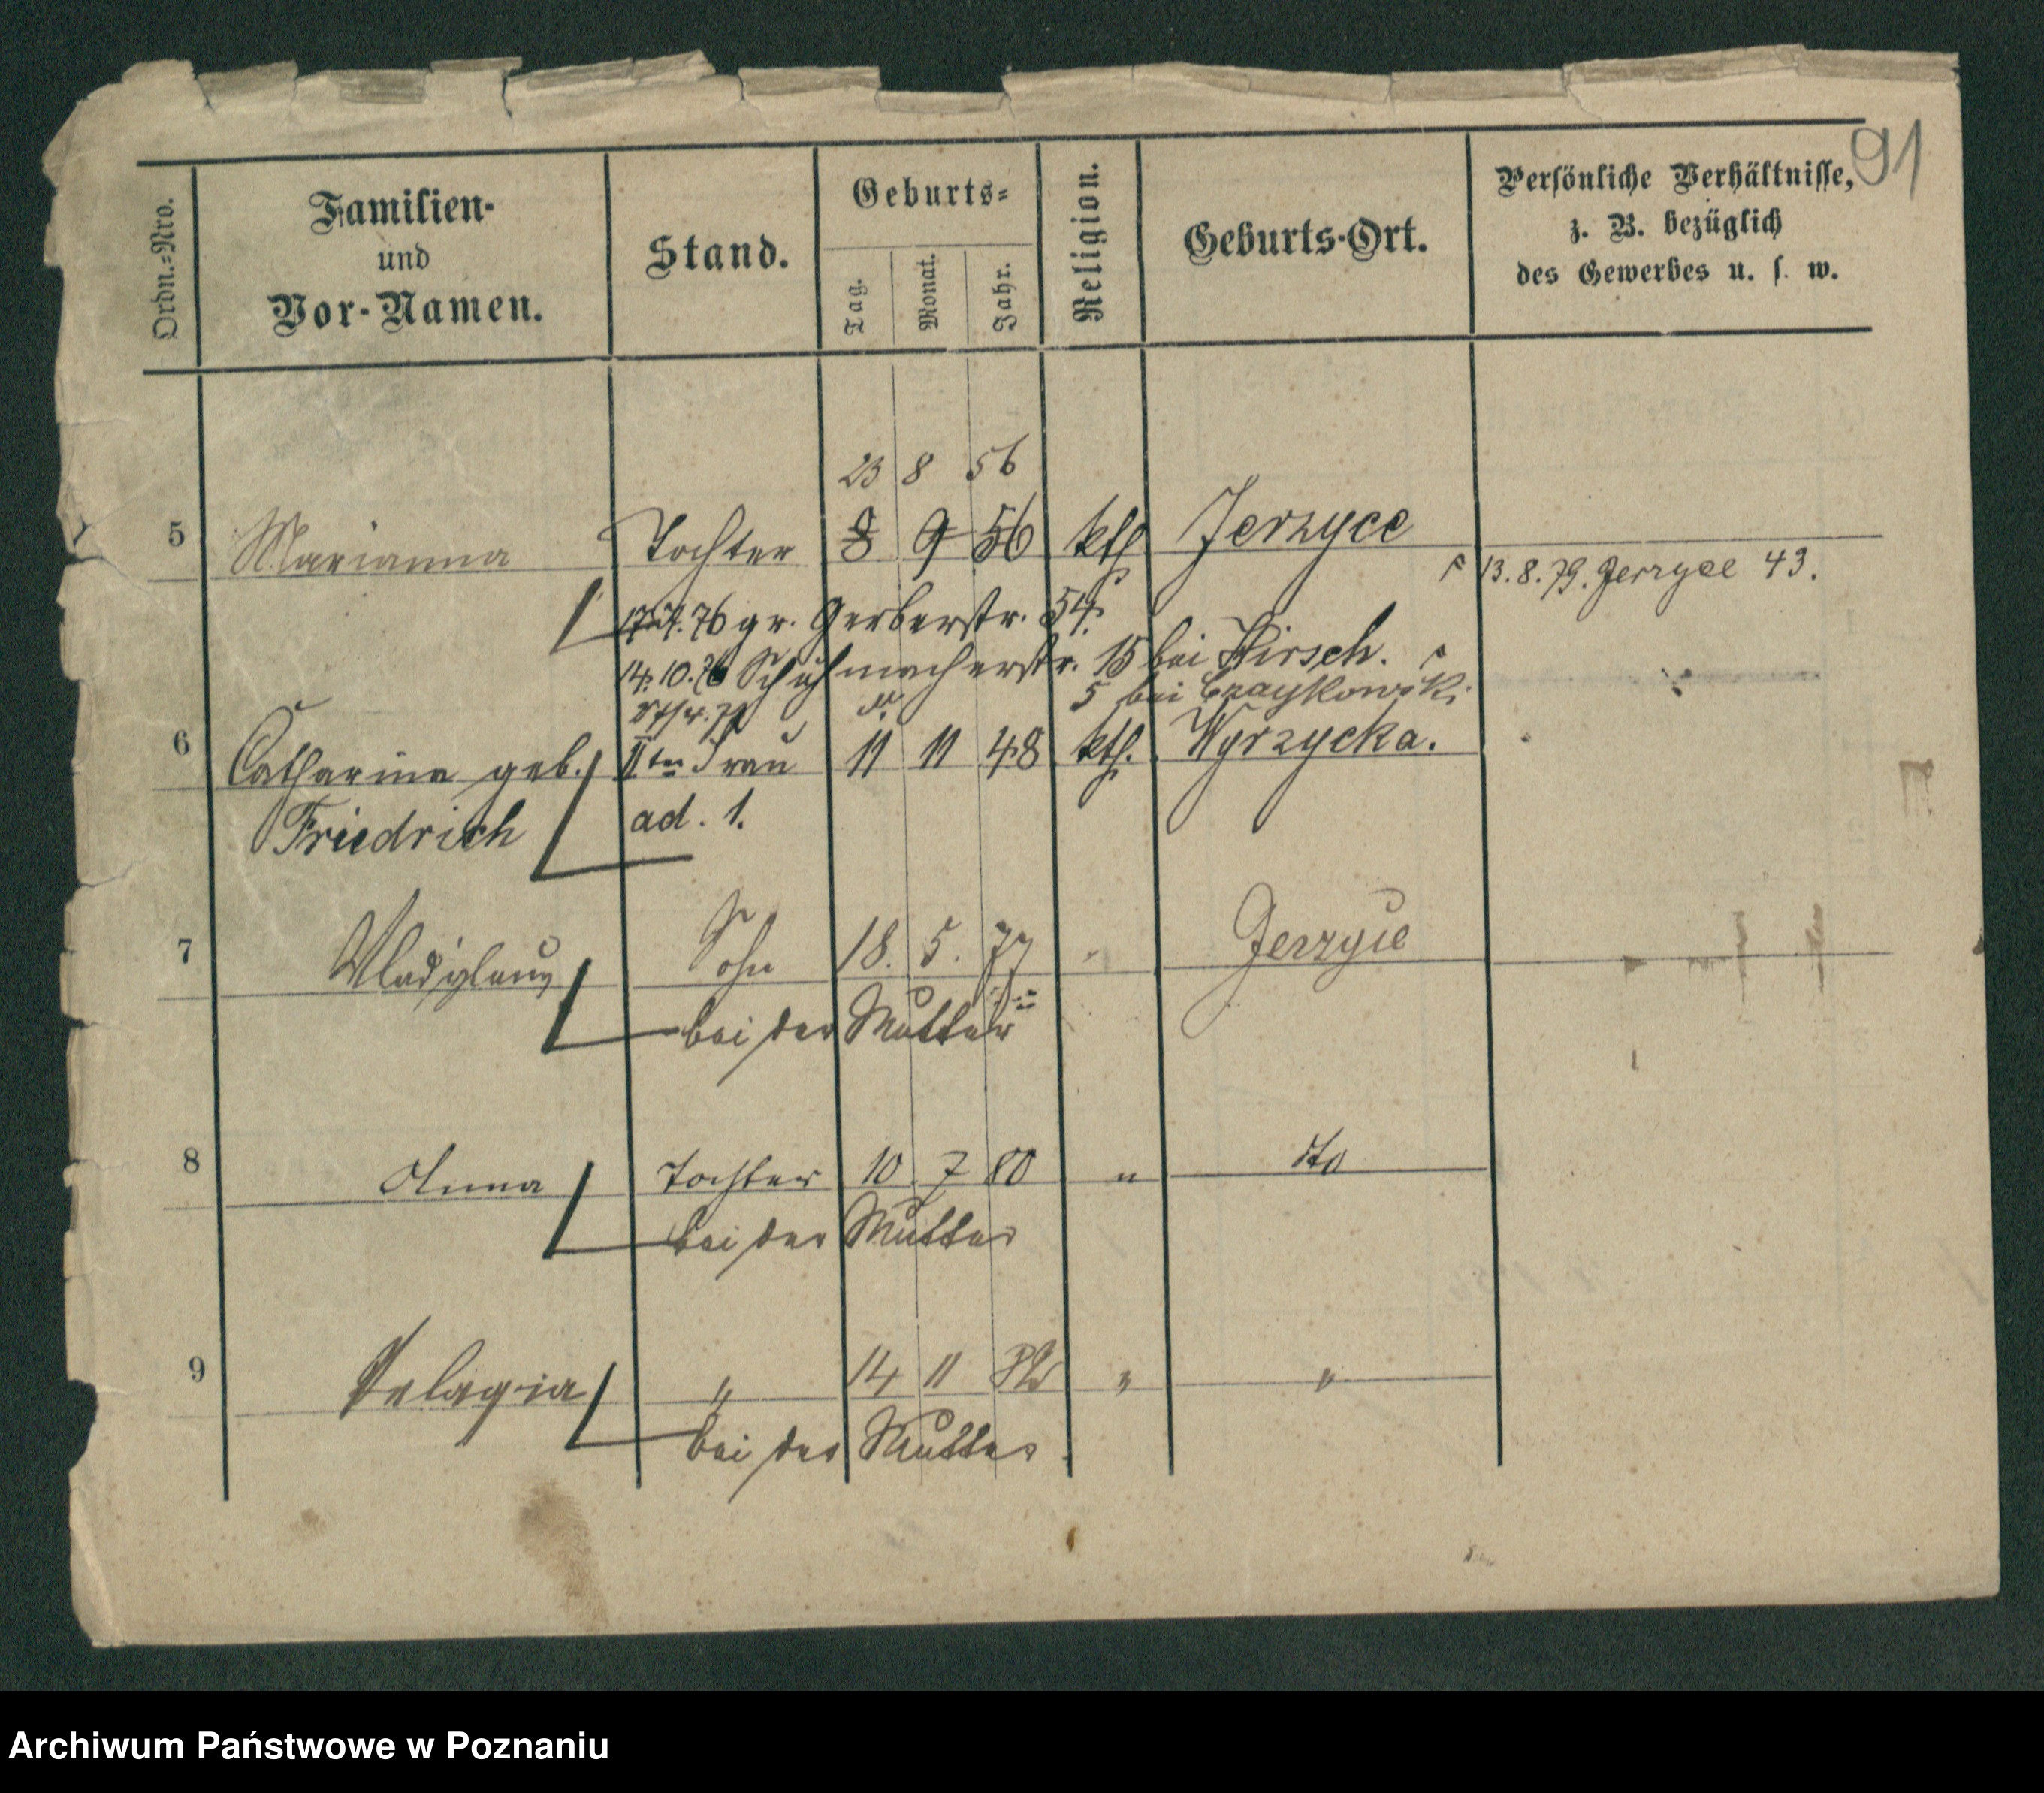 91
Ordn.-Nro.
Familien-
und
Vor-Namen.
Stand.
Geburts-
Tag.
Monat.
Jahr.
Religion.
Geburts-Ort.
Persönliche Verhältnisse,
z. B. bezüglich
des Gewerbes u. s. w.
23 8 56
5 Marianna Tochter 8 9 56 kth Jerzyce
13. 8. 79. Jerzyce 43.
76 gr. Gerberstr. 54.
14. 10. 76 Schuhmacherstr. 15 bei Hirsch.
5 bei Czaykowski
6 Catharina geb. IIte Frau 11 11 48 kth. Wyrzycka.
Friedrich ad. 1.
7 Wladislaus Sohn 18. 5. 77 " Jerzyce
bei der Mutter
8 Anna Tochter 10 7 80 " dto
bei der Mutter
9 Pelagia " 14 11 82 " "
bei der Mutter
Archiwum Państwowe w Poznaniu